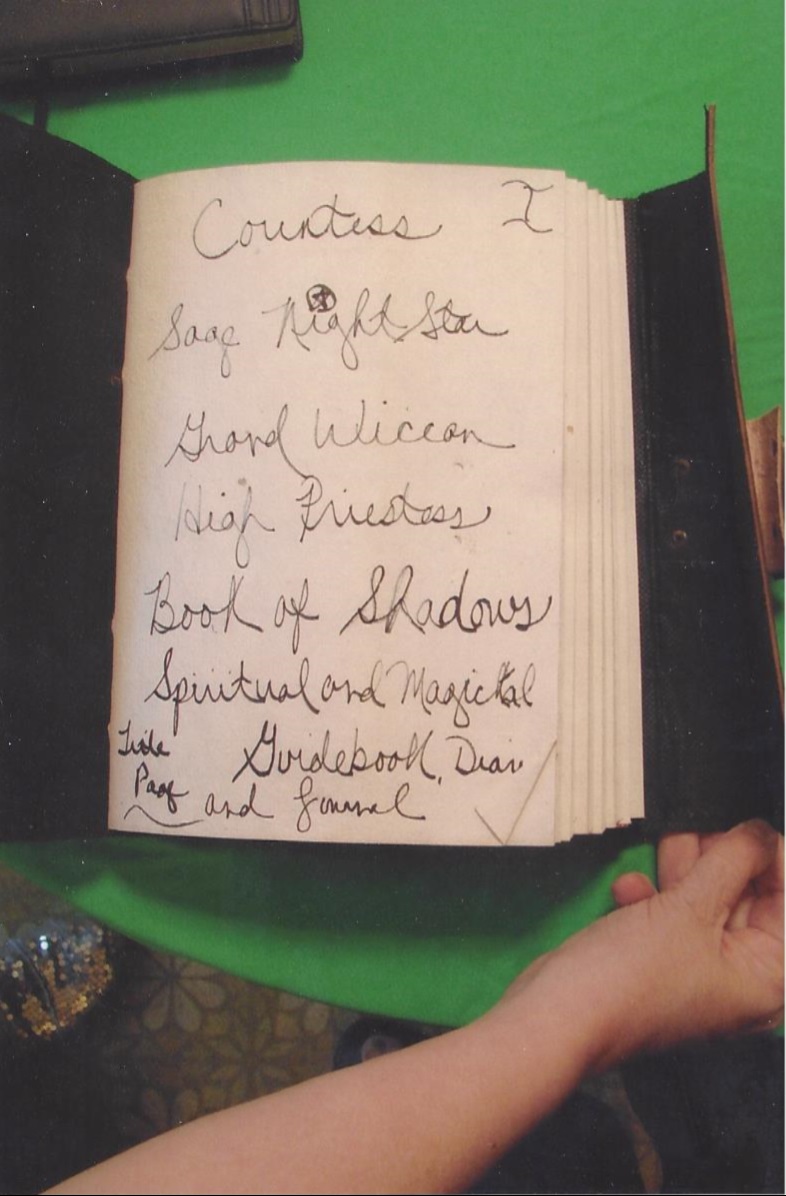 I
Countess
Sage Night Star
Grand Wiccan
High Priestess
Book of Shadows
Spiritual and Magickal
Guidebook, Diary
and Journal
Title
Page